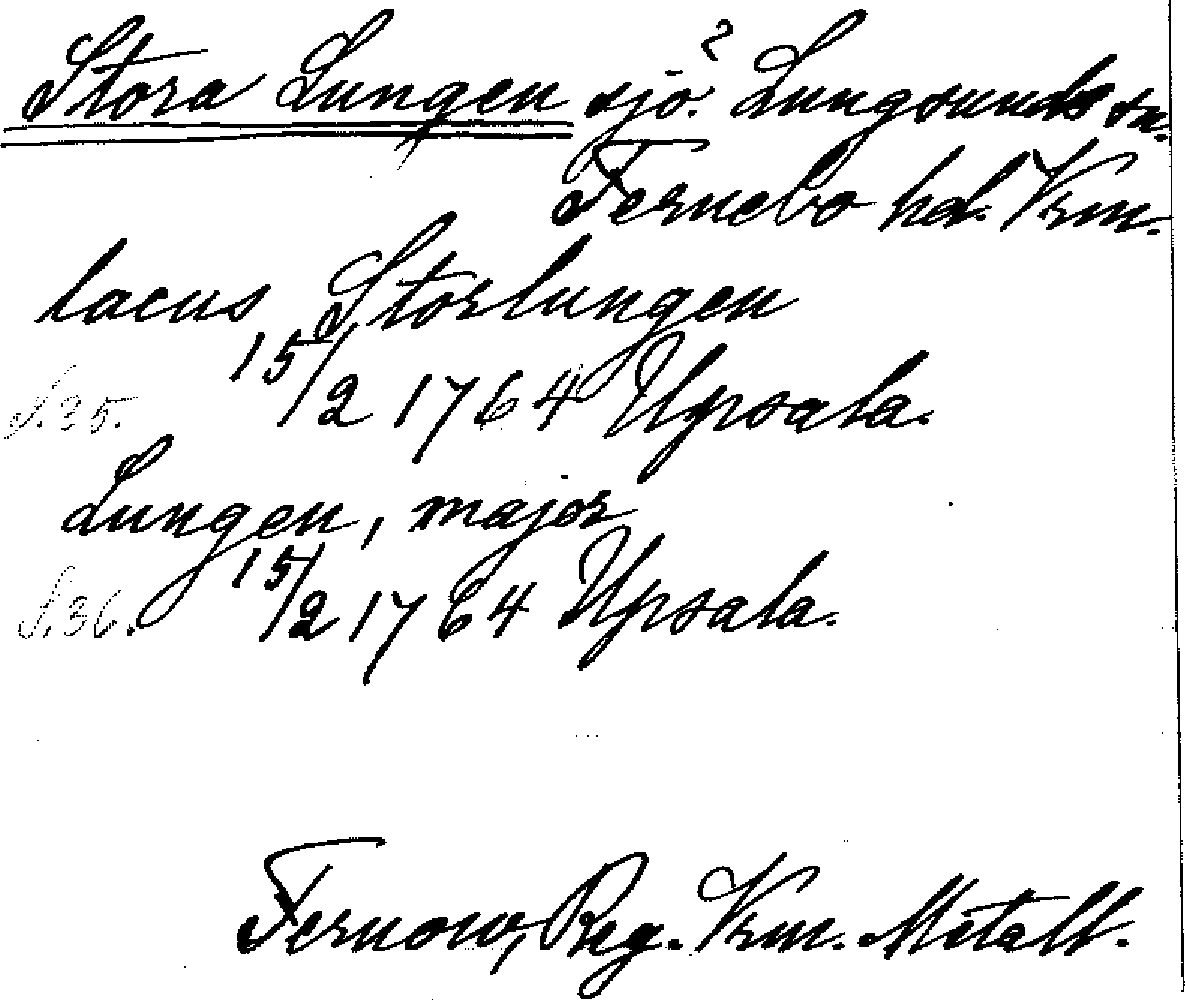 Stora Lungen sjö.² Lungsunds sn.
Fernebo hd. Vrm.
lacus Storlungen
S.35. 15/2 1764 Upsala.
Lungen, major
S.36. 15/2 1764 Upsala.
Fernow, Reg. Vrm. Metall.